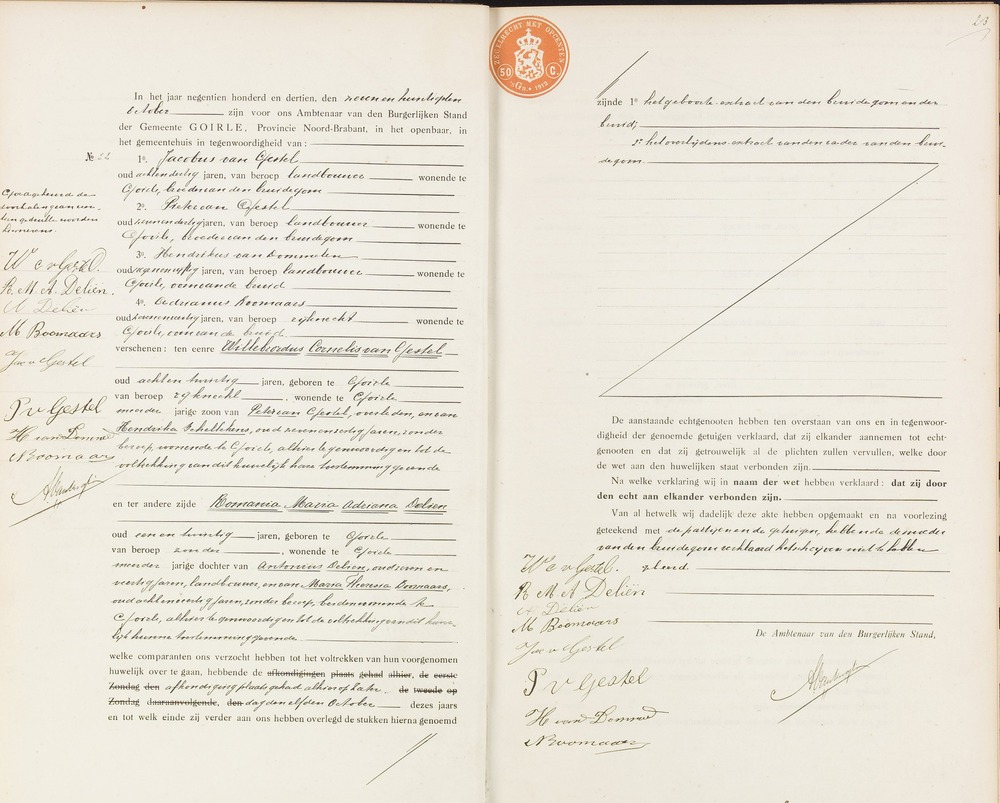 In het jaar negentien honderd en dertien, den zeven en twintigsten
October zijn voor ons Ambtenaar van den Burgerlijken Stand
der Gemeente GOIRLE, Provincie Noord-Brabant, in het openbaar, in
het gemeentehuis in tegenwoordigheid van :
№ 22
1º. Jacobus van Gestel
oud achtendertig jaren, van beroep landbouwer wonende te
Goirle, broeder van den bruidegom
2º. Pieter van Gestel
oud zevenendertig jaren, van beroep landbouwer wonende te
Goirle, broeder van den bruidegom
3º. Hendrikus van Dommelen
oud jaren, van beroep landbouwer wonende te
Goirle, oom van de bruid
4º. Adrianus Boomaars
oud jaren, van beroep wonende te
Goirle, oom van de bruid
verschenen : ten eenre Willebrordus Cornelis van Gestel
oud acht en twintig jaren, geboren te Goirle
van beroep , wonende te Goirle
meerder jarige zoon van Peter van Gestel, overleden, en van
Hendrika Schellekens, oud jaren, zonder
beroep, wonende te Goirle, alhier tegenwoordig en tot de
voltrekking van dit huwelijk hare toestemming gevende
en ter andere zijde Romania Maria Adriana Deliën
oud een en twintig jaren, geboren te Goirle
van beroep zonder , wonende te Goirle
meerder jarige dochter van Antonius Deliën, oud zeven en
veertig jaren, landbouwer, en van Maria Theresia Boomaars,
oud achtenveertig jaren, zonder beroep, beiden wonende te
Goirle, alhier tegenwoordig en tot de voltrekking van dit huwe-
lijk hunne toestemming gevende
welke comparanten ons verzocht hebben tot het voltrekken van hun voorgenomen
huwelijk over te gaan, hebbende de afkondigingen plaats gehad alhier, de eerste
Zondag den afkondiging plaats gehad alhier op Zater- de tweede op
Zondag daaraanvolgende, den dag den elfden October dezes jaars
en tot welk einde zij verder aan ons hebben overlegd de stukken hierna genoemd
Goedgekeurd de
doorhaling van
W C v Gestel.
R. M. A. Deliën.
A Deliën
M Boomaars
Jac v Gestel
P v Gestel
H van Dommelen
A Boomaars
ZEGELRECHT MET OPCENTEN
50 C.
1913
23
zijnde 1º het geboorte-extract van den bruidegom en der
bruid;
2º het overlijdens-extract van den vader van den brui-
degom.
De aanstaande echtgenooten hebben ten overstaan van ons en in tegenwoor-
digheid der genoemde getuigen verklaard, dat zij elkander aannemen tot echt-
genooten en dat zij getrouwelijk al de plichten zullen vervullen, welke door
de wet aan den huwelijken staat verbonden zijn.
Na welke verklaring wij in naam der wet hebben verklaard : dat zij door
den echt aan elkander verbonden zijn.
Van al hetwelk wij dadelijk deze akte hebben opgemaakt en na voorlezing
geteekend met de partijen en de getuigen, hebbende de moeder
van den bruidegom verklaard het schrijven niet te hebben
geleerd.
W C v Gestel.
R. M. A. Deliën
A Deliën
M Boomaars
Jac v Gestel
De Ambtenaar van den Burgerlijken Stand,
P v Gestel
H van Dommelen
A Boomaars